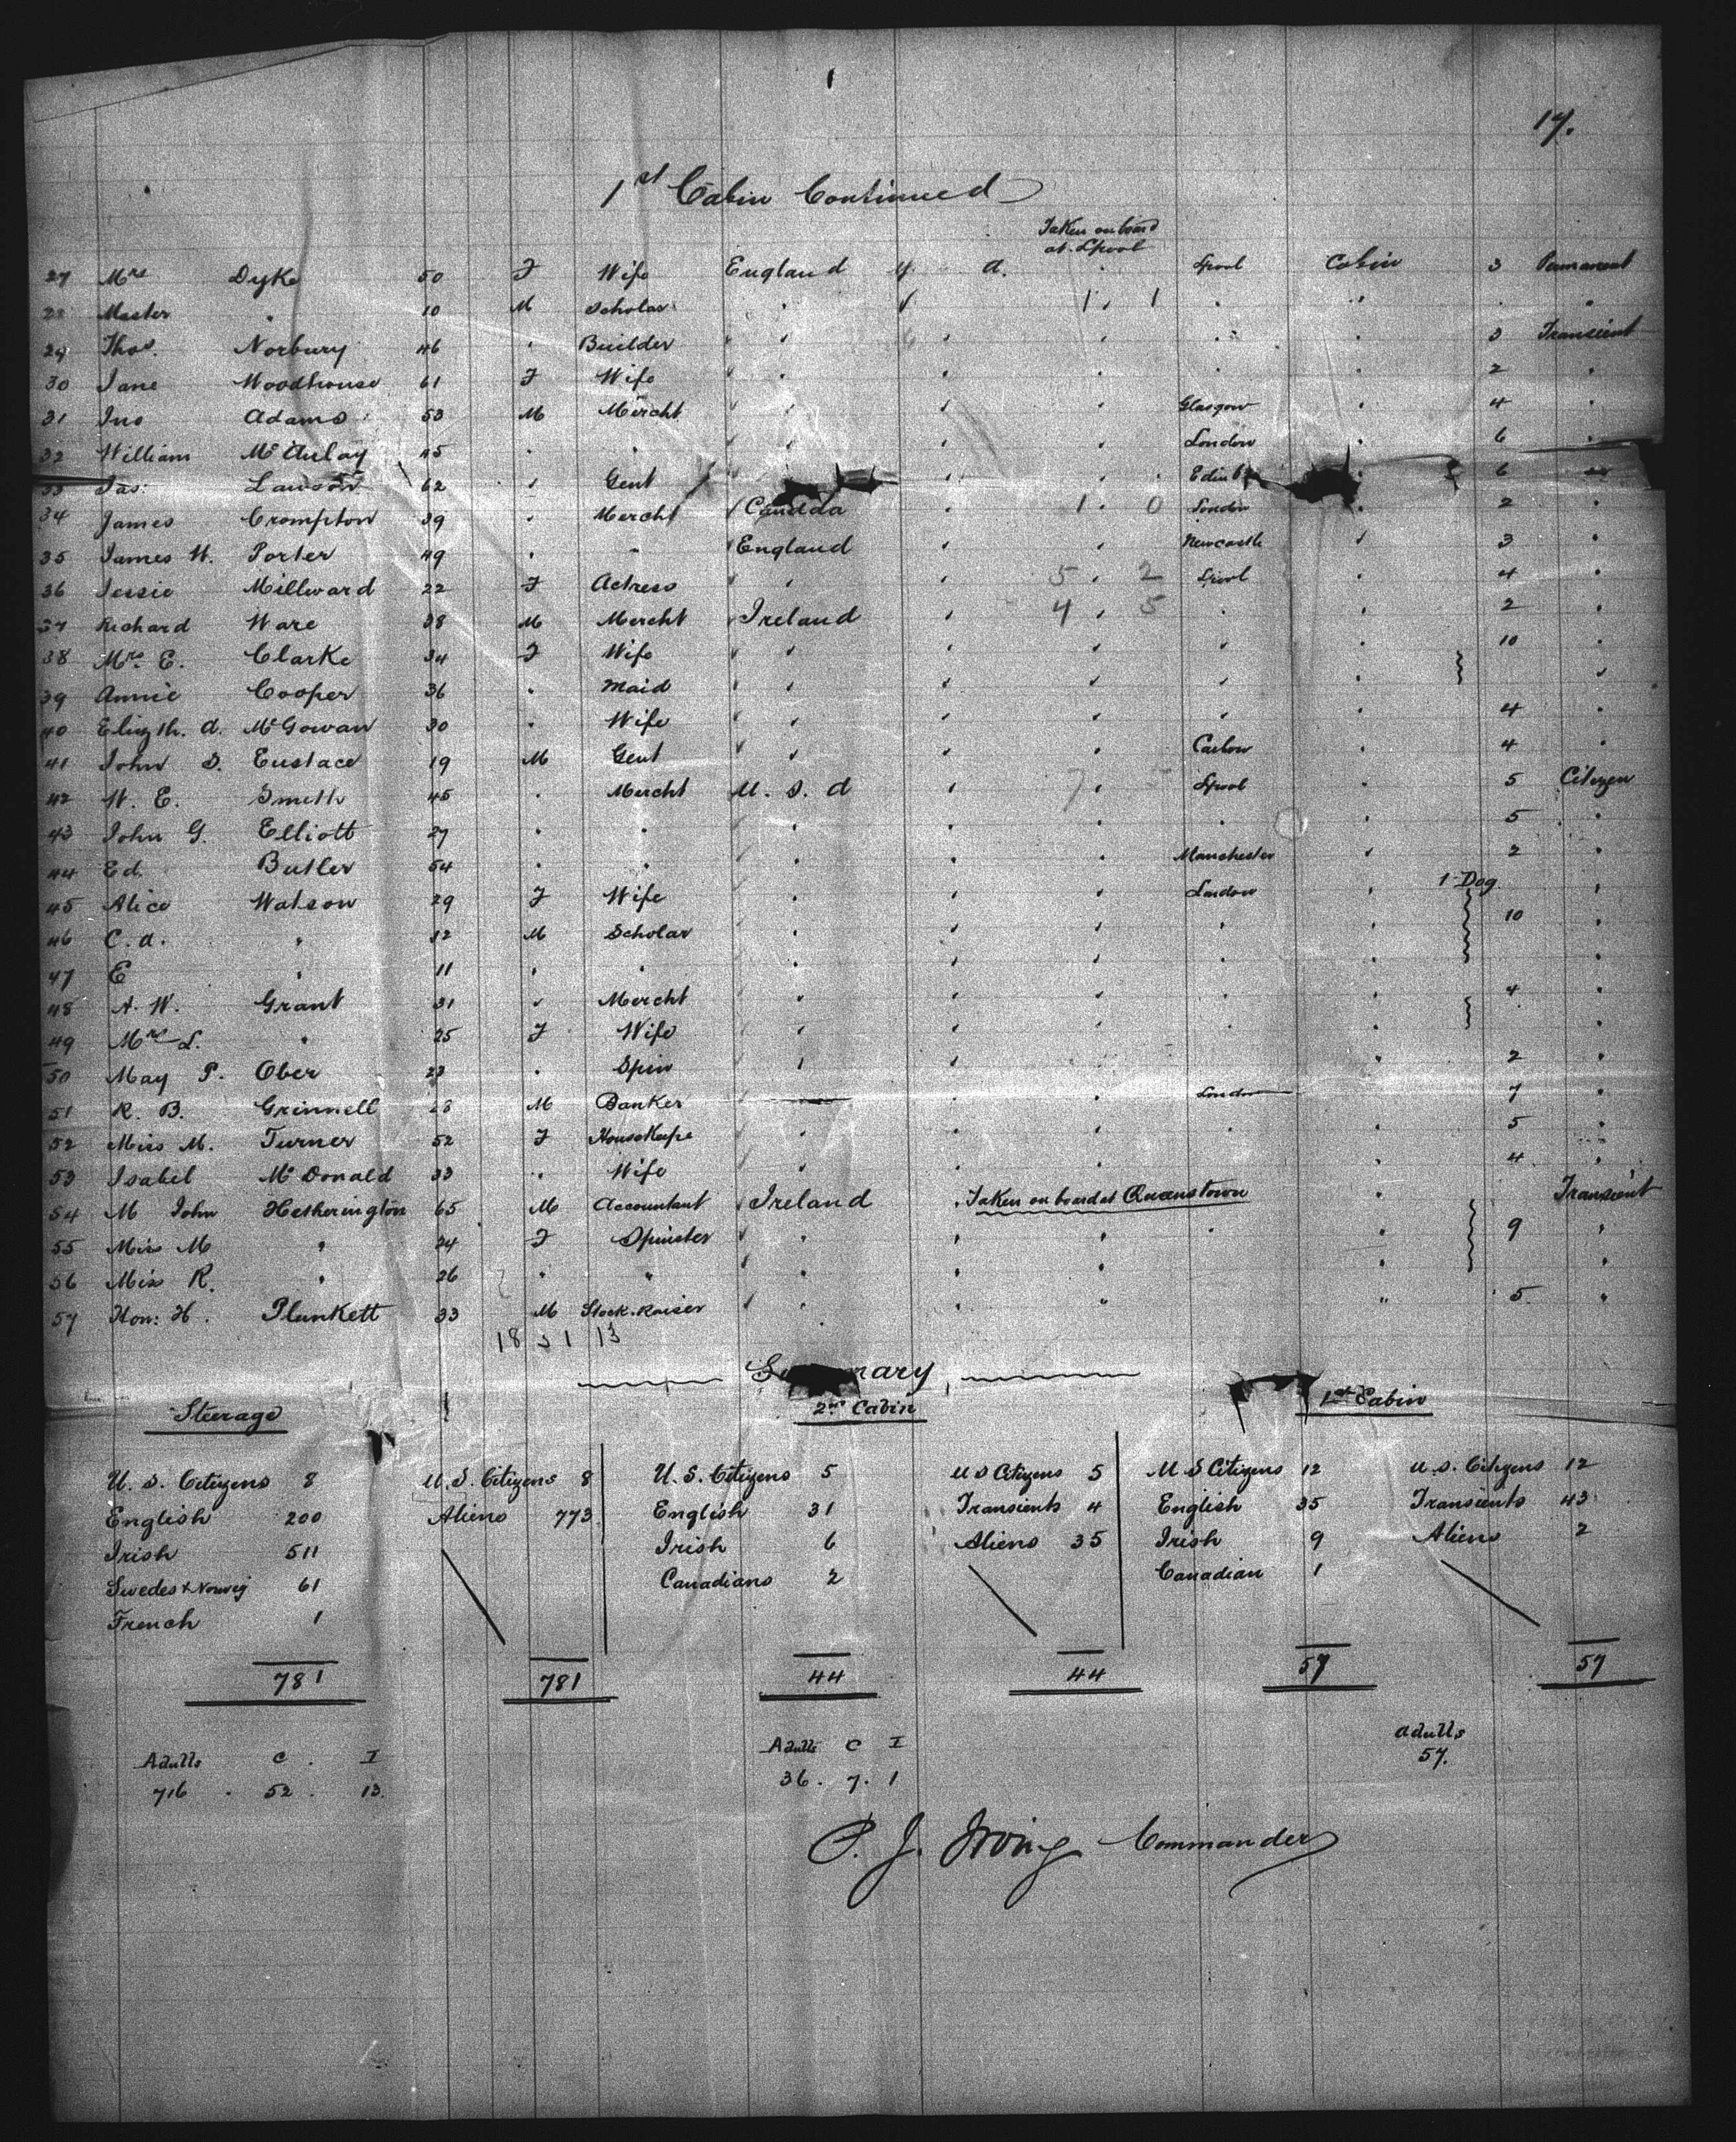 1
14.
1st Cabin Continued
Taken on board
at Lpool
27 Mrs Dyke 50 F Wife England U S A. " Lpool Cabin 3 Permanent
28 Master " 10 M Scholar " 1 1 " " " "
29 Thos. Norbury 46 " Builder " " " " " 3 Transient
30 Jane Woodhouse 61 F Wife " " " " " 2 "
31 Jno Adams 53 M Mercht " " " Glasgow " 4 "
32 William McAulay 45 " " " " " London " 6 "
33 Jas: Lawson 62 " Gent " " " Edinb " 6 "
34 James Crompton 39 " Mercht Canada " 1 0 London " 2 "
35 James W. Porter 49 " " England " " Newcastle " 3 "
36 Jessie Millward 22 F Actress " " 5 2 Lpool " 4 "
37 Richard Ware 38 M Mercht Ireland " 4 5 " " 2 "
38 Mrs. E. Clarke 34 F Wife " " " " " 10 "
39 Annie Cooper 36 " Maid " " " " " "
40 Elizth. A. McGowan 30 " Wife " " " " " 4 "
41 John S. Eustace 19 M Gent " " " Carlow " 4 "
42 W. E. Smith 45 " Mercht U. S. A " 7 Lpool " 5 Citizen
43 John G. Elliott 27 " " " " " " " 5 "
44 Ed. Butler 54 " " " " " Manchester " 2 "
45 Alice Watson 29 F Wife " " " London " 1 Dog "
46 C. A. " 12 M Scholar " " " " " 10 "
47 E " 11 " " " " " " " "
48 A. W. Grant 31 " Mercht " " " " " 4 "
49 Mrs L. " 25 F Wife " " " " " "
50 May P. Ober 23 " Spin " " " 2 "
51 R. B. Grinnell 28 M Banker " " " London " 7 "
52 Miss M. Turner 52 F HouseKeepe " " " " " 5 "
53 Isabel McDonald 33 " Wife " " " 4 "
54 M John Hetherington 65 M Accountant Ireland " Taken on board at Queenstown " Transient
55 Miss M " 24 F Spinster " " " " " 9 "
56 Miss R. " 26 " " " " " " "
57 Hon: H. Plunkett 33 M Stock-Raiser " " " " 5 "
18 31 13
Su mary
Steerage 2nd Cabin 1st Cabin
U. S. Citizens 8 U. S. Citizens 8 U. S. Citizens 5 U S Citizens 5 U S Citizens 12 U. S. Citizens 12
English 200 Aliens 773 English 31 Transients 4 English 35 Transients 43
Irish 511 Irish 6 Aliens 35 Irish 9 Aliens 2
Swedes & Norweg 61 Canadians 2 Canadian 1
French 1
781 781 44 44 57 57
Adults C. I Adults C I Adults
716 . 52 . 13. 36 . 7 . 1 57.
P. J. Irving Commander